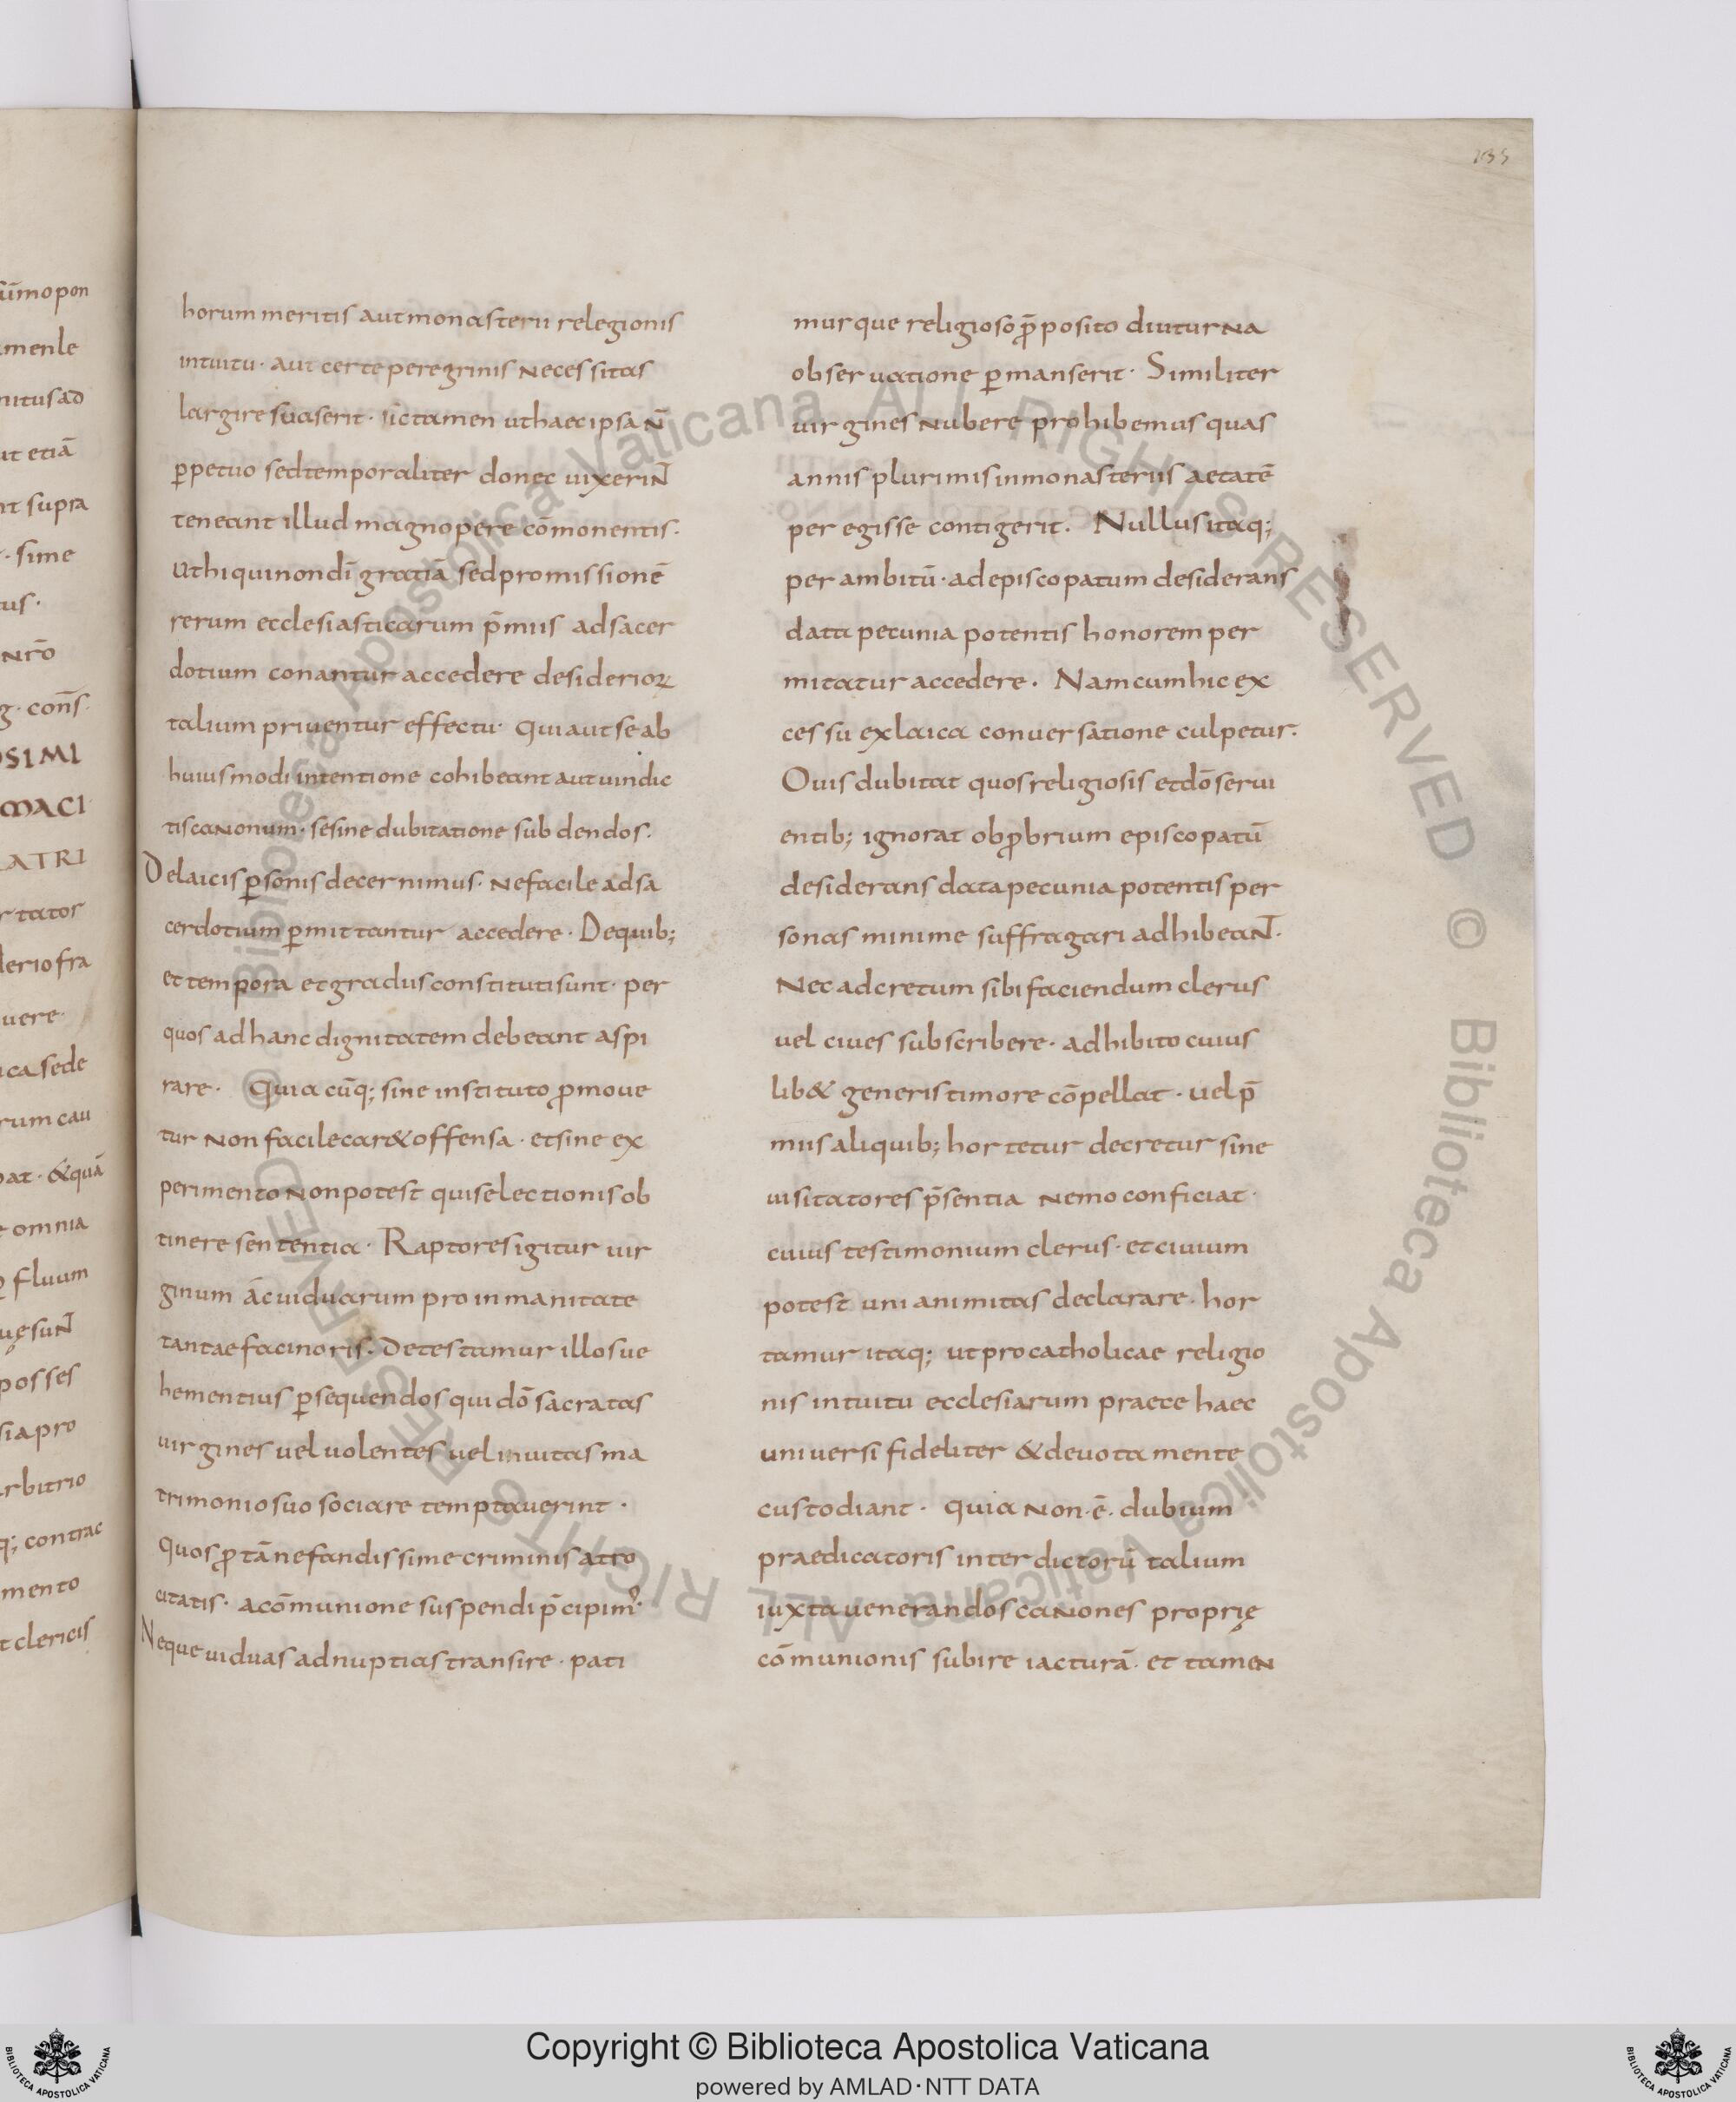 horum meritis aut monasterii relegionis
intuitu· aut certe peregrinis necessitas
largire suaserit· sic tamen ut haec ipsa n̄
ꝑpetuo sed temporaliter donec uixerin̄
teneant illud magnopere cōmonentis·
Ut hi qui non dī gratiā sed promissionē
rerum ecclesiasticarum p̄miis ad sacer
dotium conantur accedere desiderioꝝ
talium priuentur effectu· Qui aut se ab
huiusmodi intentione cohibeant aut uindic
tis canonum· se sine dubitatione subdendos·
De laicis ꝑsonis decernimus· ne facile ad sa
cerdotium ꝑmittantur accedere· De quib;
et tempora et gradus constituti sunt· per
quos ad hanc dignitatem debeant aspi
rare· Quia cūq; sine instituto ꝓmoue
tur non facile car& offensa· et sine ex
perimento non potest quis electionis ob
tinere sententia· Raptores igitur uir
ginum āc uiduarum pro inmanitate
tantae facinoris· Detestamur illos ue
hementius ꝑsequendos qui dō sacratas
uirgines uel uolentes uel inuitas ma
trimonio suo sociare temptauerint·
Quos ꝓ tā nefandissime criminis atro
citatis· a cōmunione suspendi p̄cipimꝰ·
Neque uiduas ad nuptias transire· pati
mur que religioso p̄posito diuturna
obseruatione ꝑmanserit· Similiter
uirgines nubere prohibemus quas
annis plurimis in monasteriis aetatē
peregisse contigerit· Nullus itaq;
per ambitū· ad episcopatum desiderans
data pecunia potentis honorem per
mitatur accedere· Nam cum hic ex
cessu ex laica conuersatione culpetur·
Quis dubitat quos religiosis et dō serui
entib; ignorat obꝓbrium episcopatū
desiderans data pecunia potentis per
sonas minime suffragari adhibean̄·
Nec ad cretum sibi faciendum clerus
uel ciues subscribere· adhibito cuius
lib& generis timore cōpellat· uel p̄
miis aliquib; hortetur decretur sine
uisitatores p̄sentia nemo conficiat·
cuius testimonium clerus· et ciuium
potest unianimitas declarare· hor
tamur itaq; ut pro catholicae religio
nis intuitu ecclesiarum praece haec
uniuersi fideliter & deuota mente
custodiant· quia non·ē· dubium
praedicatoris interdictorū talium
iuxta uenerandos canones proprię
cōmunionis subire iacturā· et tamen
Copyright © Biblioteca Apostolica Vaticana
powered by AMLAD·NTT DATA